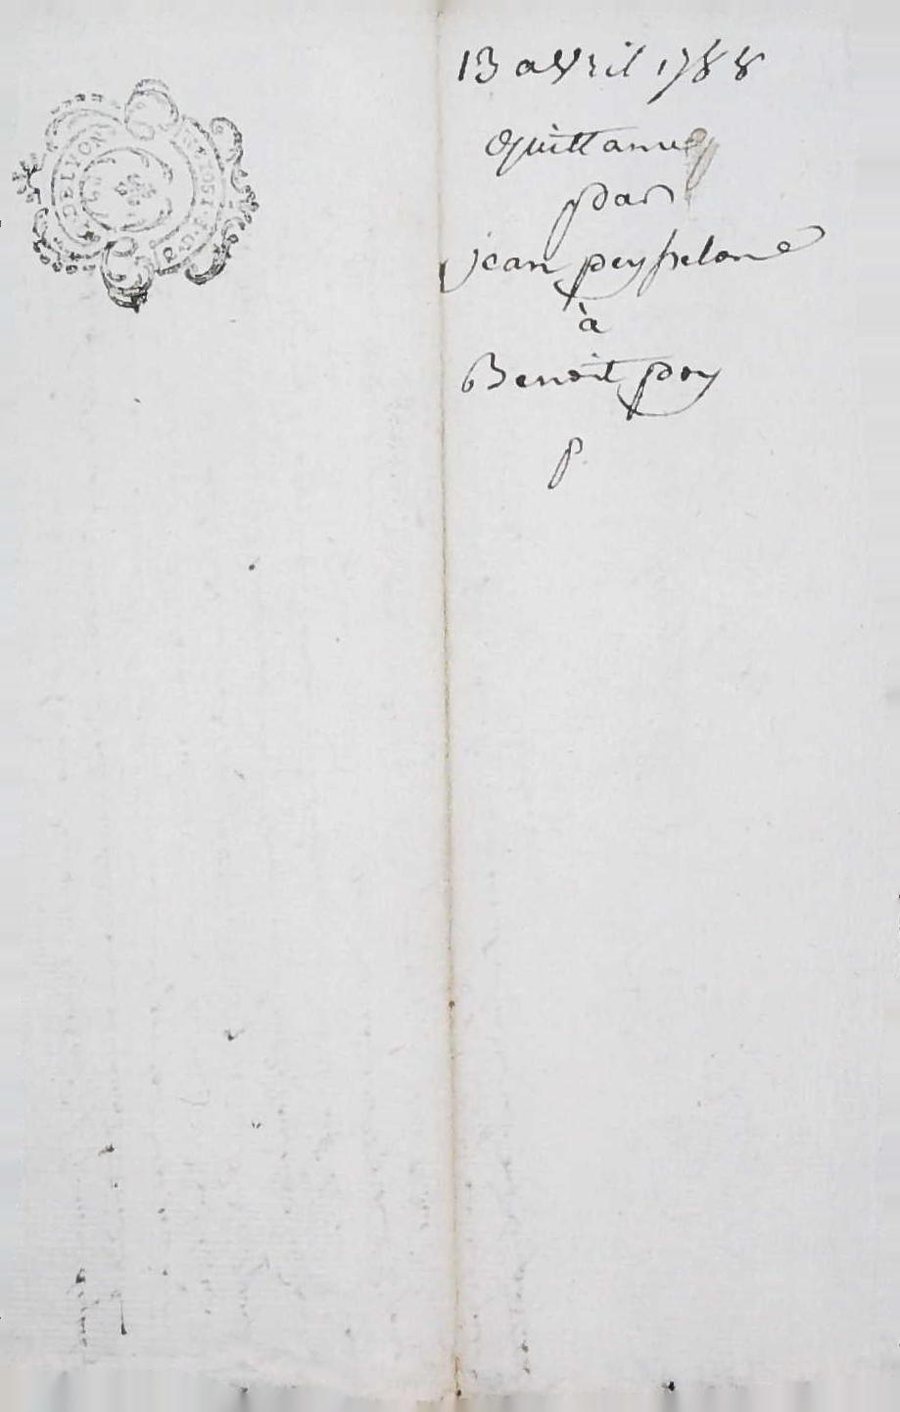 13 avril 1788
Quittance
par
jean peysselon
à
Benoit poy
p